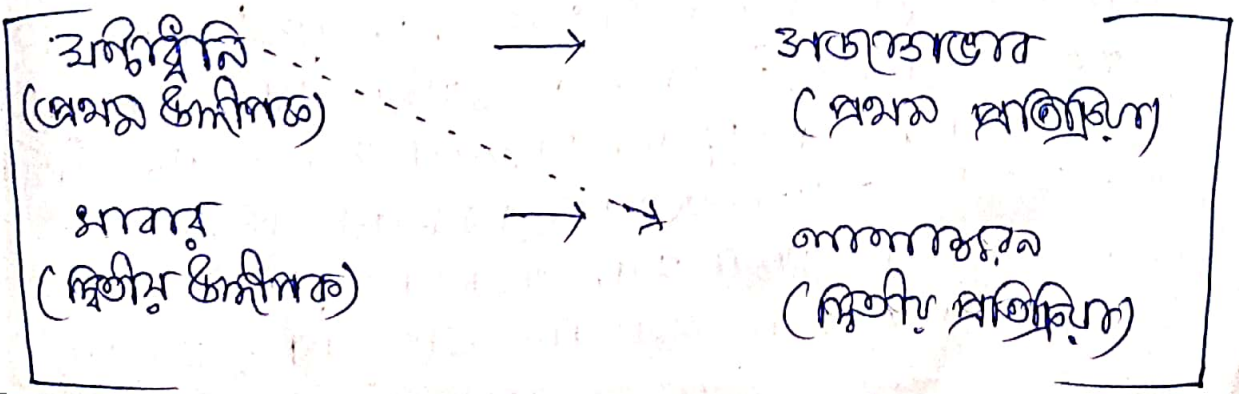 ঘন্টাধ্বনি → সজাগভাব
(প্রথম উদ্দীপক) (প্রথম প্রতিক্রিয়া)
খাবার → লালাক্ষরন
(দ্বিতীয় উদ্দীপক) (দ্বিতীয় প্রতিক্রিয়া)